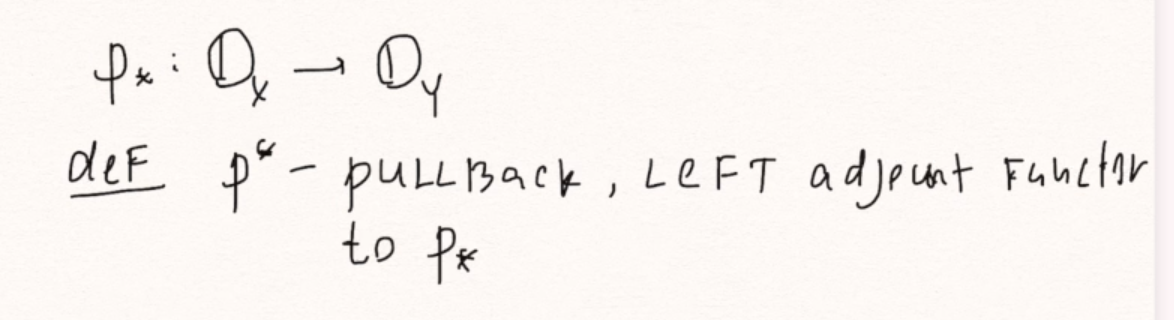 p_* : 𝔻_X → 𝔻_Y
deF p^* – pULLBack, LeFT adjount Functor
to p_*